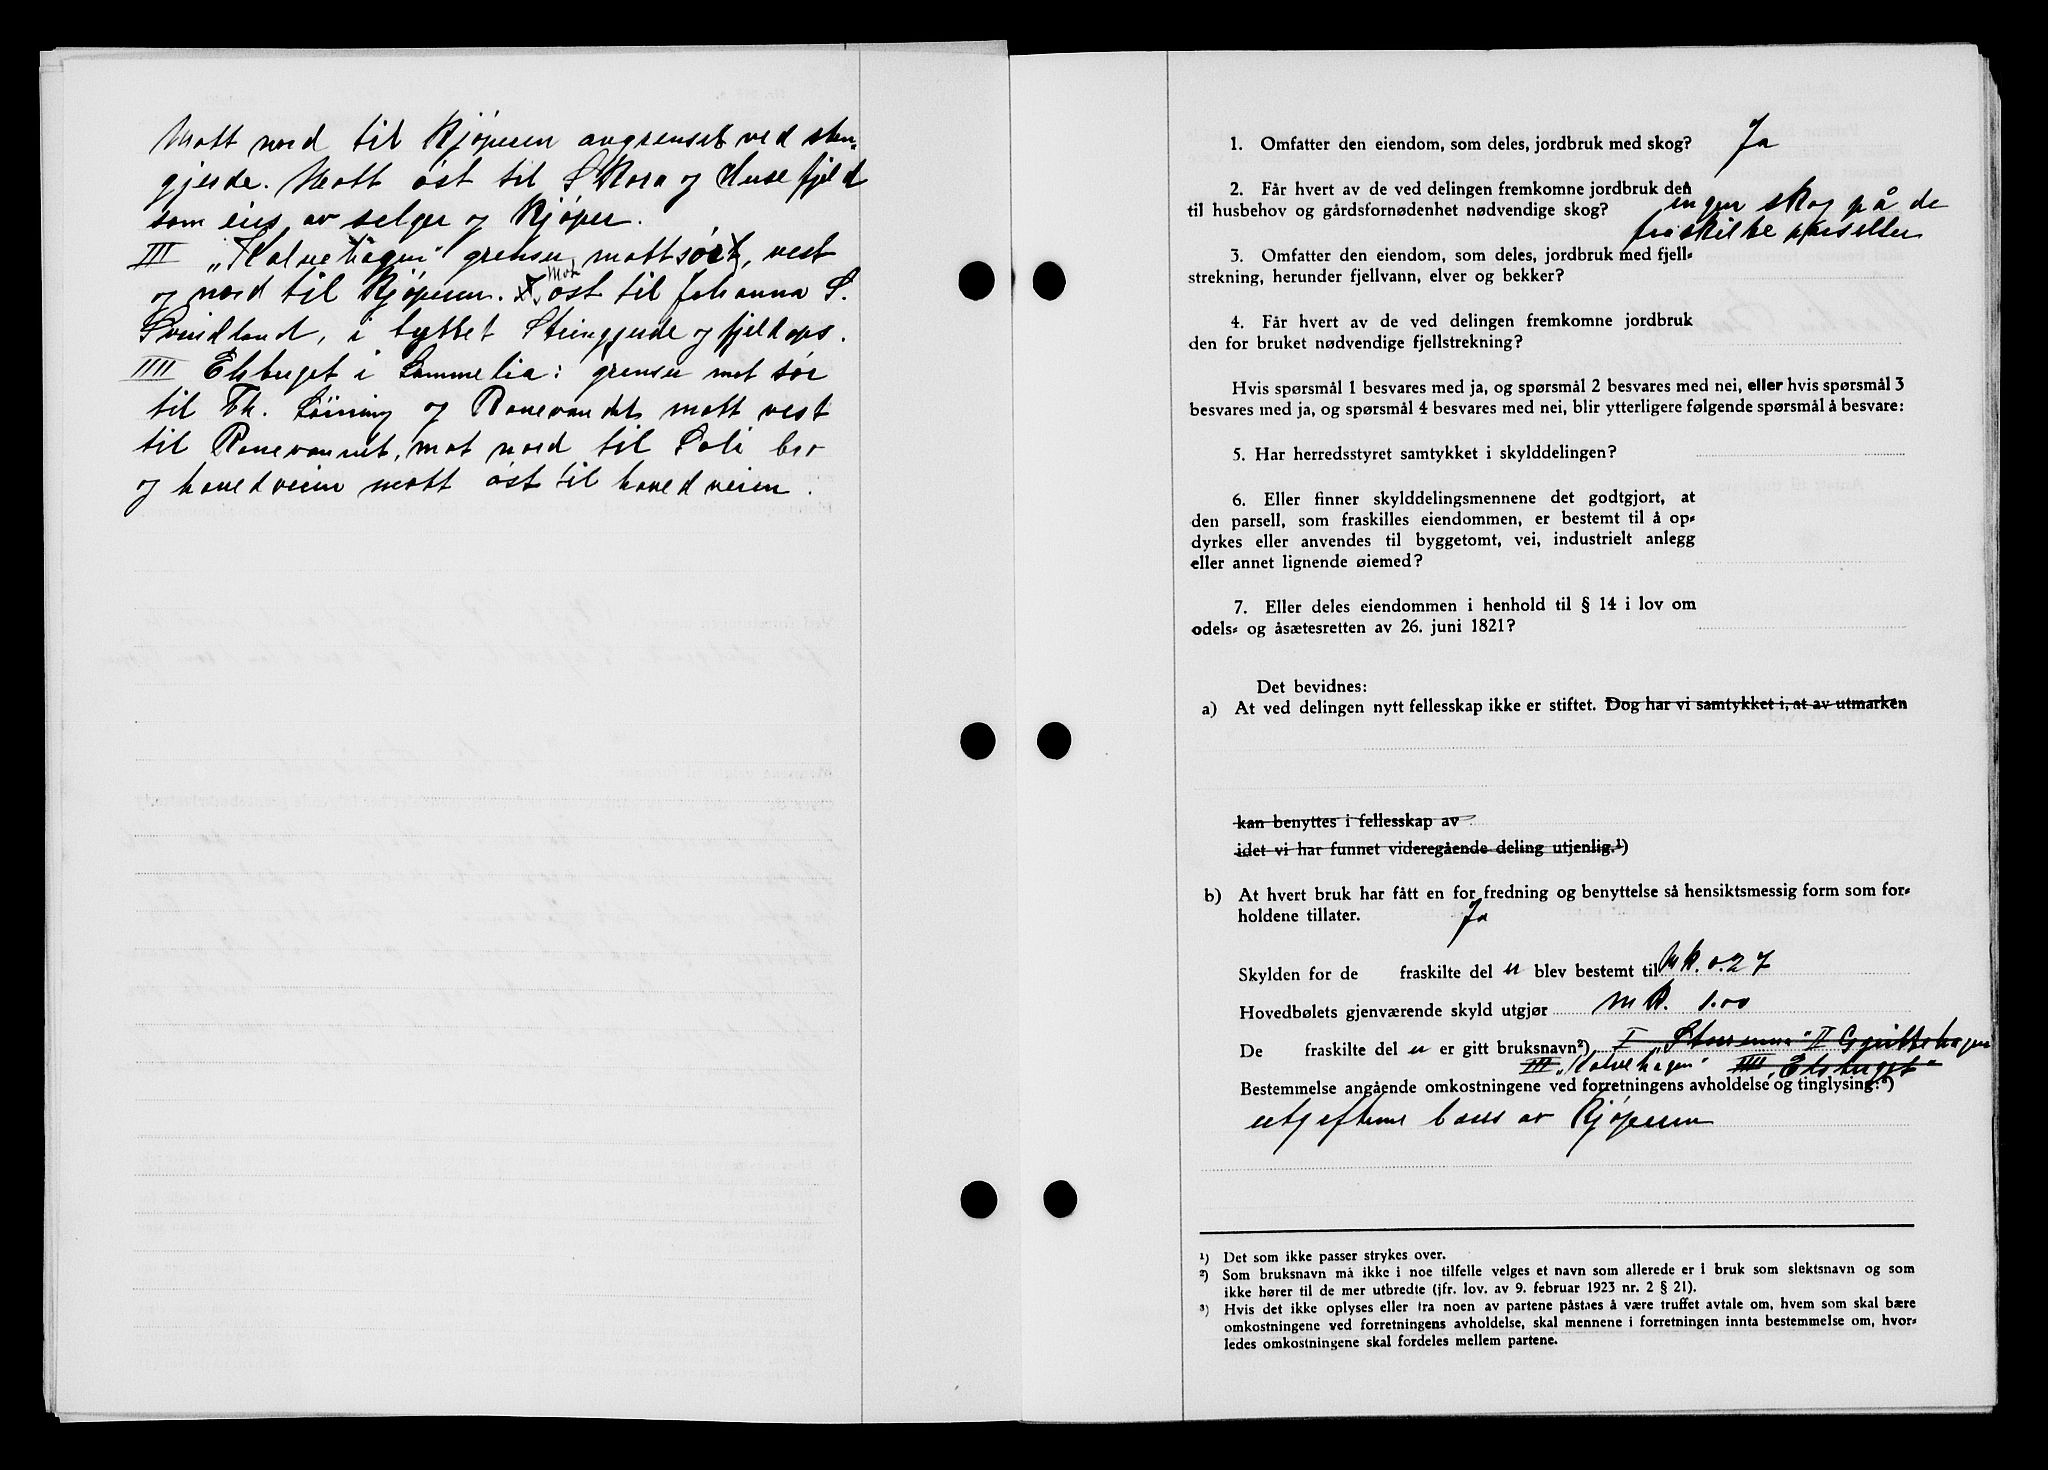 Mott nord til Kjøperen avgrenset ved sten-
gjerde. Mott øst til Skora og Husefjeld
som eies av selger og Kjøper.
III „Kalvehagen" grenser mott sør, vest
og nord til Kjøperen. Mot øst til Johanna S.
Svindland, i byttet Steingjerde og fjeldops.
IIII Elsberget i Lommelia: grenser mot sør
til Th. Løining og Ronevandet mott vest
til Ronevannet, mot nord til Soli bro
og hovedveien mott øst til hovedveien.
1. Omfatter den eiendom, som deles, jordbruk med skog? Ja
2. Får hvert av de ved delingen fremkomne jordbruk den
til husbehov og gårdsfornødenhet nødvendige skog? ingen skog på de
fraskilte parseller
3. Omfatter den eiendom, som deles, jordbruk med fjell-
strekning, herunder fjellvann, elver og bekker?
4. Får hvert av de ved delingen fremkomne jordbruk
den for bruket nødvendige fjellstrekning?
Hvis spørsmål 1 besvares med ja, og spørsmål 2 besvares med nei, eller hvis spørsmål 3
besvares med ja, og spørsmål 4 besvares med nei, blir ytterligere følgende spørsmål å besvare:
5. Har herredsstyret samtykket i skylddelingen?
6. Eller finner skylddelingsmennene det godtgjort, at
den parsell, som fraskilles eiendommen, er bestemt til å op-
dyrkes eller anvendes til byggetomt, vei, industrielt anlegg
eller annet lignende øiemed?
7. Eller deles eiendommen i henhold til § 14 i lov om
odels- og åsætesretten av 26. juni 1821?
Det bevidnes:
a) At ved delingen nytt fellesskap ikke er stiftet. Dog har vi samtykket i, at av utmarken
kan benyttes i fellesskap av
idet vi har funnet videregående deling utjenlig.¹)
b) At hvert bruk har fått en for fredning og benyttelse så hensiktsmessig form som for-
holdene tillater. Ja
Skylden for de fraskilte del er blev bestemt til Mk. 0.27
Hovedbølets gjenværende skyld utgjør mk. 1.00
De fraskilte del er er gitt bruksnavn²) I „ II
III „Kalvehagen" IIII „Elsberget"
Bestemmelse angående omkostningene ved forretningens avholdelse og tinglysing:³)
utgiftene bæres av Kjøperen
¹) Det som ikke passer strykes over.
²) Som bruksnavn må ikke i noe tilfelle velges et navn som allerede er i bruk som slektsnavn og som
ikke hører til de mer utbredte (jfr. lov. av 9. februar 1923 nr. 2 § 21).
³) Hvis det ikke oplyses eller fra noen av partene påstaes å være truffet avtale om, hvem som skal bære
omkostningene ved forretningens avholdelse, skal mennene i forretningen innta bestemmelse om, hvor-
ledes omkostningene skal fordeles mellem partene.